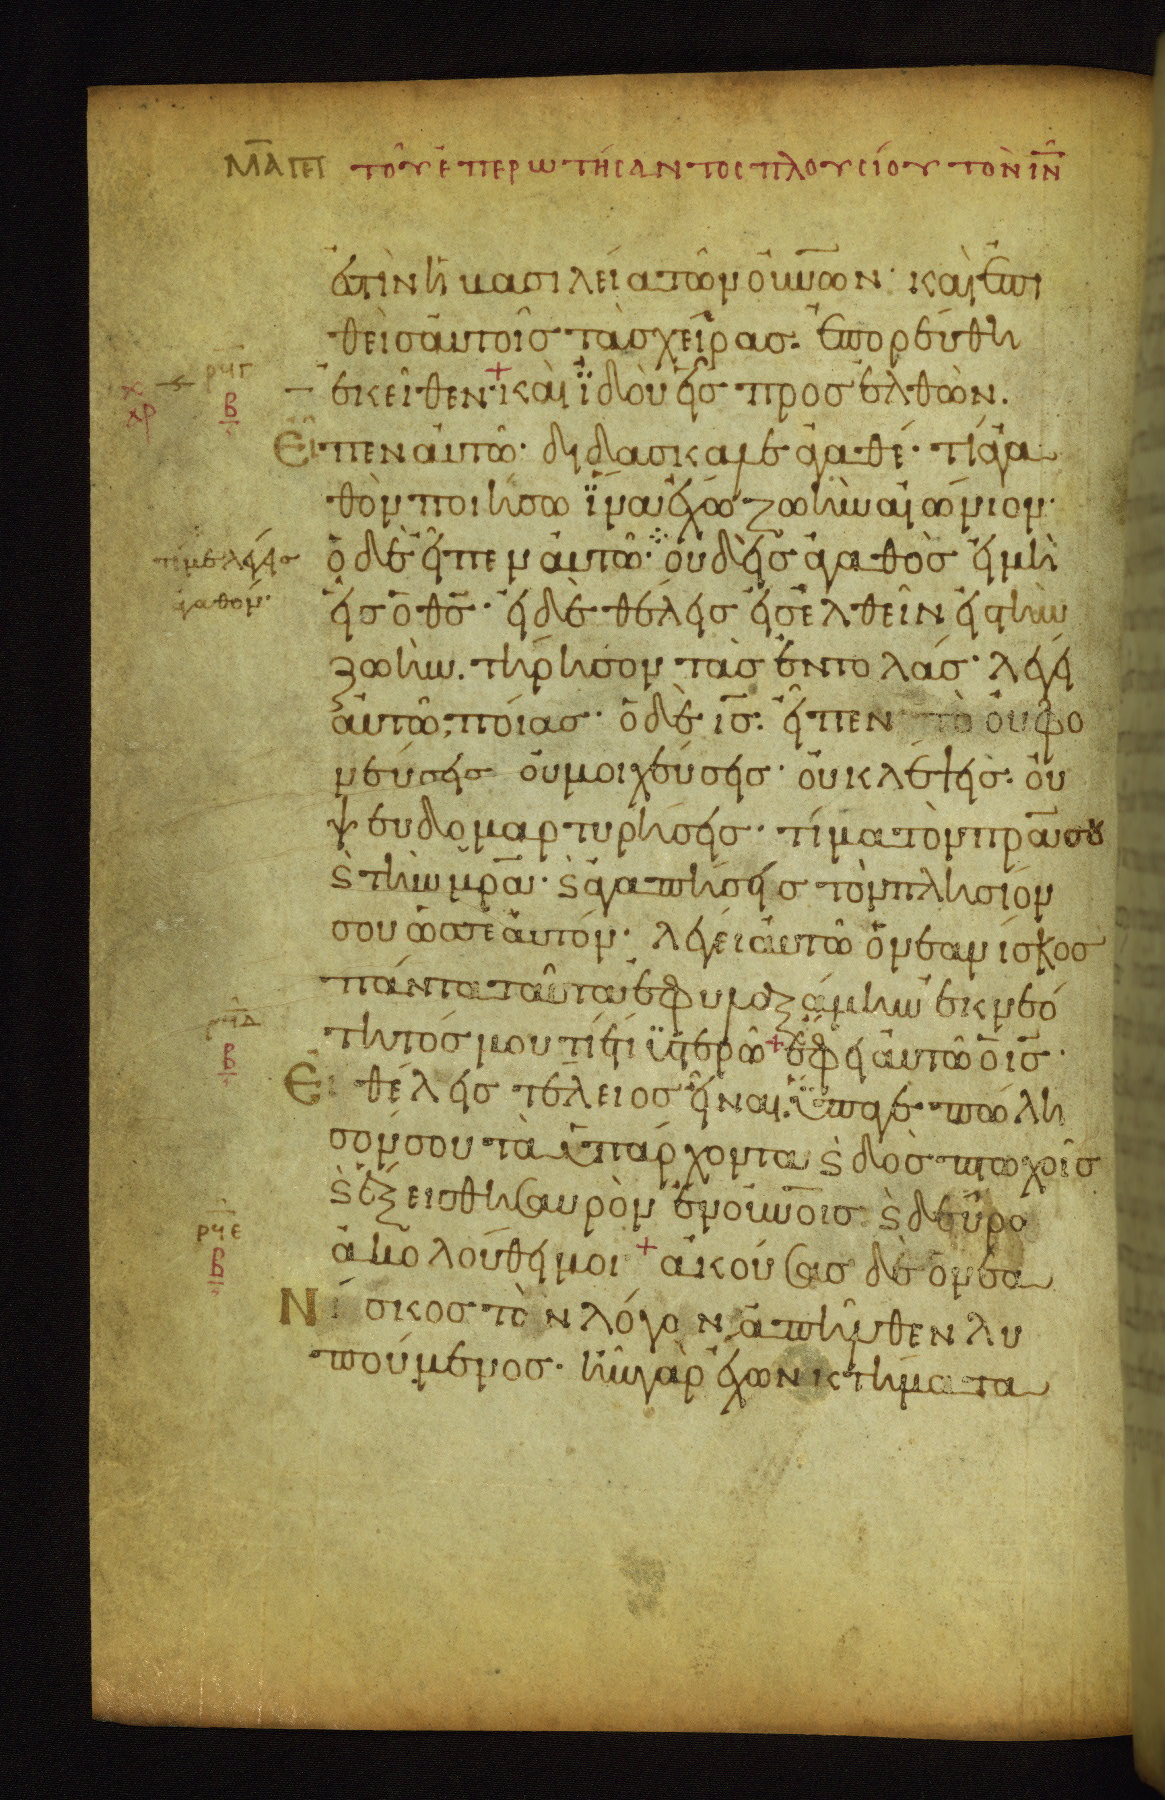 ΜΑΤΘ τοῦ ἐπερωτήσαντος πλουσίου τὸν ἰν
ἐστὶν ἡ βασιλεία τῶν οὐνῶν· καὶ ἐπι
θεὶς αὐτοῖς τὰς χεῖρας. ἐπορεύθη
ρϟγ
ἐκεῖθεν + καὶ ἰδοὺ εἷς προσελθὼν.
β
Εἶπεν αὐτῶ· διδάσκαλε ἀγαθέ· τί ἀγα
θὸν ποιήσω ἵνα ἔχω ζωὴν αἰώνιον·
τί με λέγεις
ὁ δὲ εἶπεν αὐτῶ· οὐδεὶς ἀγαθὸς εἰ μὴ
ἀγαθόν·
εἷς ὁ θς· εἰ δὲ θέλεις εἰσελθεῖν εἰς τὴν
ζωὴν. τήρησον τὰς ἐντολάς· λέγει
αὐτῶ, ποίας· ὁ δὲ ις. εἶπεν τὸ οὐ φο
νεύσεις οὐ μοιχεύσεις· οὐ κλέψεις. οὐ
ψευδομαρτυρήσεις· τίμα τὸν πρα σου
ϗ τὴν μρα· ϗ ἀγαπήσεις τὸν πλησίον
σου ὡς σεαυτόν· λέγει αὐτῶ ὁ νεανίσκος
πάντα ταῦτα ἐφυλαξάμην ἐκ νεό
ρϟδ
τητός μου τί ἔτι ὑστερῶ + ἔφη αὐτῶ ὁ ις·
β
Εἰ θέλεις τέλειος εἶναι. ὕπαγε πώλη
σόν σου τὰ ὑπάρχοντα ϗ δὸς πτωχοῖς
ϗ ἕξεις θησαυρὸν ἐν οὐνοις ϗ δεῦρο
ρϟε
ἀκολούθει μοι + ἀκούσας δὲ ὁ νεα
β
Νίσκος τὸν λόγον, ἀπῆλθεν λυ
πούμενος· ἦν γὰρ ἔχων κτήματα